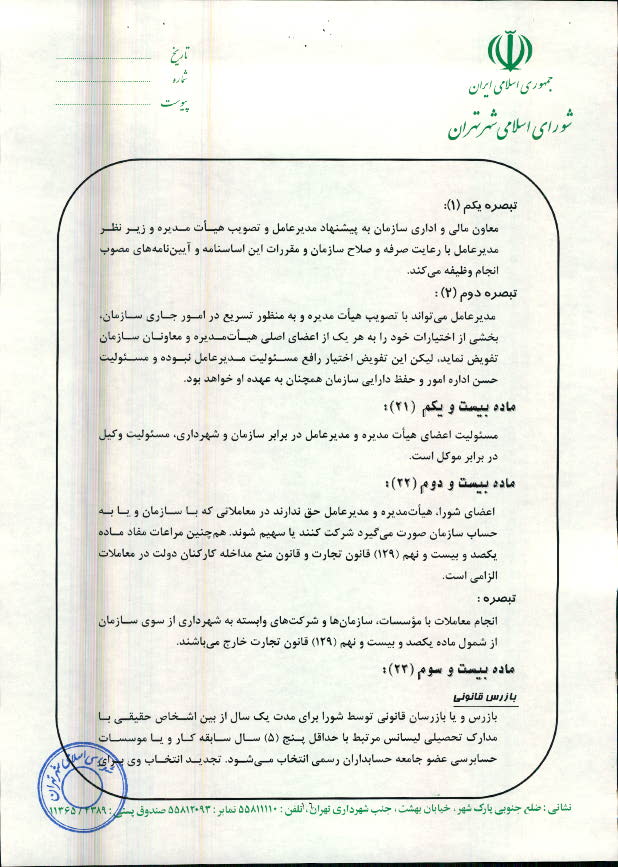 جمهوری اسلامی ایران
شورای اسلامی شهر تهران
تاریخ
شماره
پیوست
تبصره یکم (۱):
معاون مالی و اداری سازمان به پیشنهاد مدیرعامل و تصویب هیأت مـدیره و زیـر نظـر
مدیرعامل با رعایت صرفه و صلاح سازمان و مقررات این اساسنامه و آیین‌نامه‌های مصوب
انجام وظیفه می‌کند.
تبصره دوم (۲):
مدیرعامل می‌تواند با تصویب هیأت مدیره و به منظور تسریع در امـور جـاری سـازمان،
بخشی از اختیارات خود را به هر یک از اعضای اصلی هیـأت‌مـدیره و معاونـان سـازمان
تفویض نماید، لیکن این تفویض اختیار رافع مسـئولیت مـدیرعامل نبـوده و مسـئولیت
حسن اداره امور و حفظ دارایی سازمان همچنان به عهده او خواهد بود.
ماده بیست و یکم (۲۱):
مسئولیت اعضای هیأت مدیره و مدیرعامل در برابر سازمان و شهرداری، مسئولیت وکیل
در برابر موکل است.
ماده بیست و دوم (۲۲):
اعضای شورا، هیأت‌مدیره و مدیرعامل حق ندارند در معاملاتی که بـا سـازمان و یـا بـه
حساب سازمان صورت می‌گیرد شرکت کنند یا سهیم شوند. هم‌چنین مراعات مفاد مـاده
یکصد و بیست و نهم (۱۲۹) قانون تجارت و قانون منع مداخله کارکنان دولت در معاملات
الزامی است.
تبصره :
انجام معاملات با مؤسسات، سازمان‌ها و شرکت‌های وابسته به شهرداری از سوی سـازمان
از شمول ماده یکصد و بیست و نهم (۱۲۹) قانون تجارت خارج می‌باشند.
ماده بیست و سوم (۲۳):
بازرس قانونی
بازرس و یا بازرسان قانونی توسط شورا برای مدت یک سال از بین اشـخاص حقیقـی بـا
مدارک تحصیلی لیسانس مرتبط با حداقل پنـج (۵) سـال سـابقه کـار و یـا موسسـات
حسابرسی عضو جامعه حسابداران رسمی انتخاب می‌شـود. تجدیـد انتخـاب وی بـرای
نشانی : ضلع جنوبی پارک شهر، خیابان بهشت، جنب شهرداری تهران، تلفن : ۵۵۸۱۱۱۱۰ نمابر : ۵۵۸۱۲۰۹۳ صندوق پستی : ۴۳۸۹ / ۱۱۳۶۵